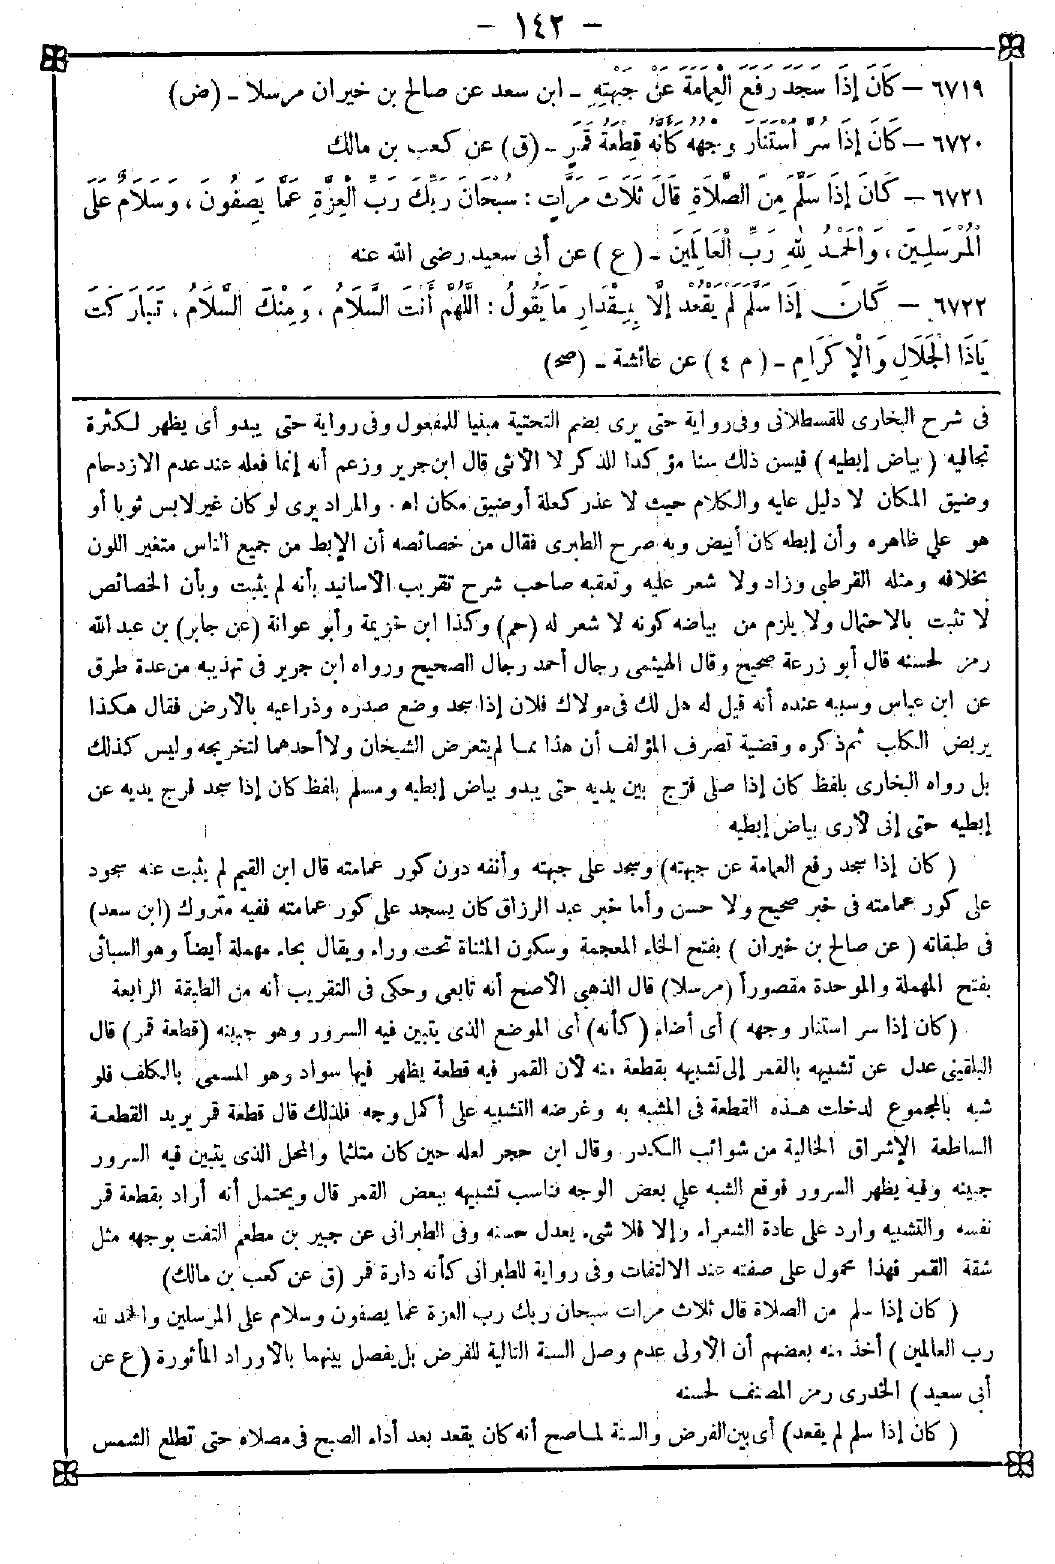 - ١٤٢ -
٦٧١٩ – كَانَ إِذَا سَجَدَ رَفَعَ الْعِمَامَةَ عَنْ جَبْهَتِهِ - ابن سعد عن صالح بن خيران مرسلا - (ض)
٦٧٢٠ – كَانَ إِذَا سُرَّ اسْتَنَارَ وَجْهُهُ كَأَنَّهُ قِطْعَةُ قَمَرٍ - (ق) عن كعب بن مالك
٦٧٢١ – كَانَ إِذَا سَلَّمَ مِنَ الصَّلَاةِ قَالَ ثَلَاثَ مَرَّاتٍ : سُبْحَانَ رَبِّكَ رَبِّ الْعِزَّةِ عَمَّا يَصِفُونَ ، وَسَلَامٌ عَلَى
الْمُرْسَلِينَ ، وَالْحَمْدُ لِلهِ رَبِّ الْعَالَمِينَ - (ع) عن أبى سعيد رضى الله عنه
٦٧٢٢ – كَانَ إِذَا سَلَّمَ لَمْ يَقْعُدْ إِلَّا بِمِقْدَارِ مَا يَقُولُ : اللَّهُمَّ أَنْتَ السَّلَامُ ، وَمِنْكَ السَّلَامُ ، تَبَارَكْتَ
يَاذَا الْجَلَالِ وَالْإِكْرَامِ - (م ٤) عن عائشة - (صح)
فى شرح البخارى للقسطلانى وفى رواية حتى يرى بضم التحتية مبنيا للمفعول وفى رواية حتى يبدو أى يظهر لكثرة
تجافيه (بياض إبطيه) فيسن ذلك سنا مؤكدا للذكر لا الأنثى قال ابن جرير وزعم أنه إنما فعله عند عدم الازدحام
وضيق المكان لا دليل عليه والكلام حيث لا عذر كعلة أوضيق مكان اه. والمراد يرى لو كان غير لابس ثوبا أو
هو على ظاهره وأن إبطه كان أبيض وبه صرح الطبرى فقال من خصائصه أن الإبط من جميع الناس متغير اللون
بخلافه ومثله القرطبى وزاد ولا شعر عليه وتعقبه صاحب شرح تقريب الأسانيد بأنه لم يثبت وبأن الخصائص
لا تثبت بالاحتمال ولا يلزم من بياضه كونه لا شعر له (حم) وكذا ابن خزيمة وأبو عوانة (عن جابر) بن عبد الله
رمز لحسنه قال أبو زرعة صحيح وقال الهيثمى رجال أحمد رجال الصحيح ورواه ابن جرير فى تهذيبه من عدة طرق
عن ابن عباس وسببه عنده أنه قيل له هل لك فى مولاك فلان إذا سجد وضع صدره وذراعيه بالأرض فقال هكذا
يربض الكلب ثم ذكره وقضية تصرف المؤلف أن هذا مما لم يتعرض الشيخان ولا أحدهما لتخريجه وليس كذلك
بل رواه البخارى بلفظ كان إذا صلى فرّج بين يديه حتى يبدو بياض إبطيه ومسلم بلفظ كان إذا سجد فرج يديه عن
إبطيه حتى إنى لأرى بياض إبطيه
(كان إذا سجد رفع العمامة عن جبهته) وسجد على جبهته وأنفه دون كور عمامته قال ابن القيم لم يثبت عنه سجود
على كور عمامته فى خبر صحيح ولا حسن وأما خبر عبد الرزاق كان يسجد على كور عمامته ففيه متروك (ابن سعد)
فى طبقاته (عن صالح بن خيران) بفتح الخاء المعجمة وسكون المثناة تحت وراء ويقال بحاء مهملة أيضاً وهو السبائى
بفتح المهملة والموحدة مقصوراً (مرسلا) قال الذهبى الأصح أنه تابعى وحكى فى التقريب أنه من الطبقة الرابعة
(كان إذا سر استنار وجهه) أى أضاء (كأنه) أى الموضع الذى يتبين فيه السرور وهو جبينه (قطعة قمر) قال
البلقينى عدل عن تشبيهه بالقمر إلى تشبيهه بقطعة منه لأن القمر فيه قطعة يظهر فيها سواد وهو المسمى بالكلف فلو
شبه بالمجموع لدخلت هذه القطعة فى المشبه به وغرضه التشبيه على أكمل وجه فلذلك قال قطعة قمر يريد القطعة
الساطعة الإشراق الخالية من شوائب الكدر وقال ابن حجر لعله حين كان متلثما والمحل الذى يتبين فيه السرور
جبينه وفيه يظهر السرور فوقع الشبه على بعض الوجه فناسب تشبيهه ببعض القمر قال ويحتمل أنه أراد بقطعة قمر
نفسه والتشبيه وارد على عادة الشعراء وإلا فلا شىء يعدل حسنه وفى الطبرانى عن جبير بن مطعم التفت بوجهه مثل
شقة القمر فهذا محمول على صفته عند الالتفات وفى رواية للطبرانى كأنه دارة قمر (ق عن كعب بن مالك)
(كان إذا سلم من الصلاة قال ثلاث مرات سبحان ربك رب العزة عما يصفون وسلام على المرسلين والحمد لله
رب العالمين) أخذ منه بعضهم أن الأولى عدم وصل السنة التالية للفرض بل يفصل بينهما بالأوراد المأثورة (ع عن
أبى سعيد) الخدرى رمز المصنف لحسنه
(كان إذا سلم لم يقعد) أى بين الفرض والسنة لما صح أنه كان يقعد بعد أداء الصبح فى مصلاه حتى تطلع الشمس